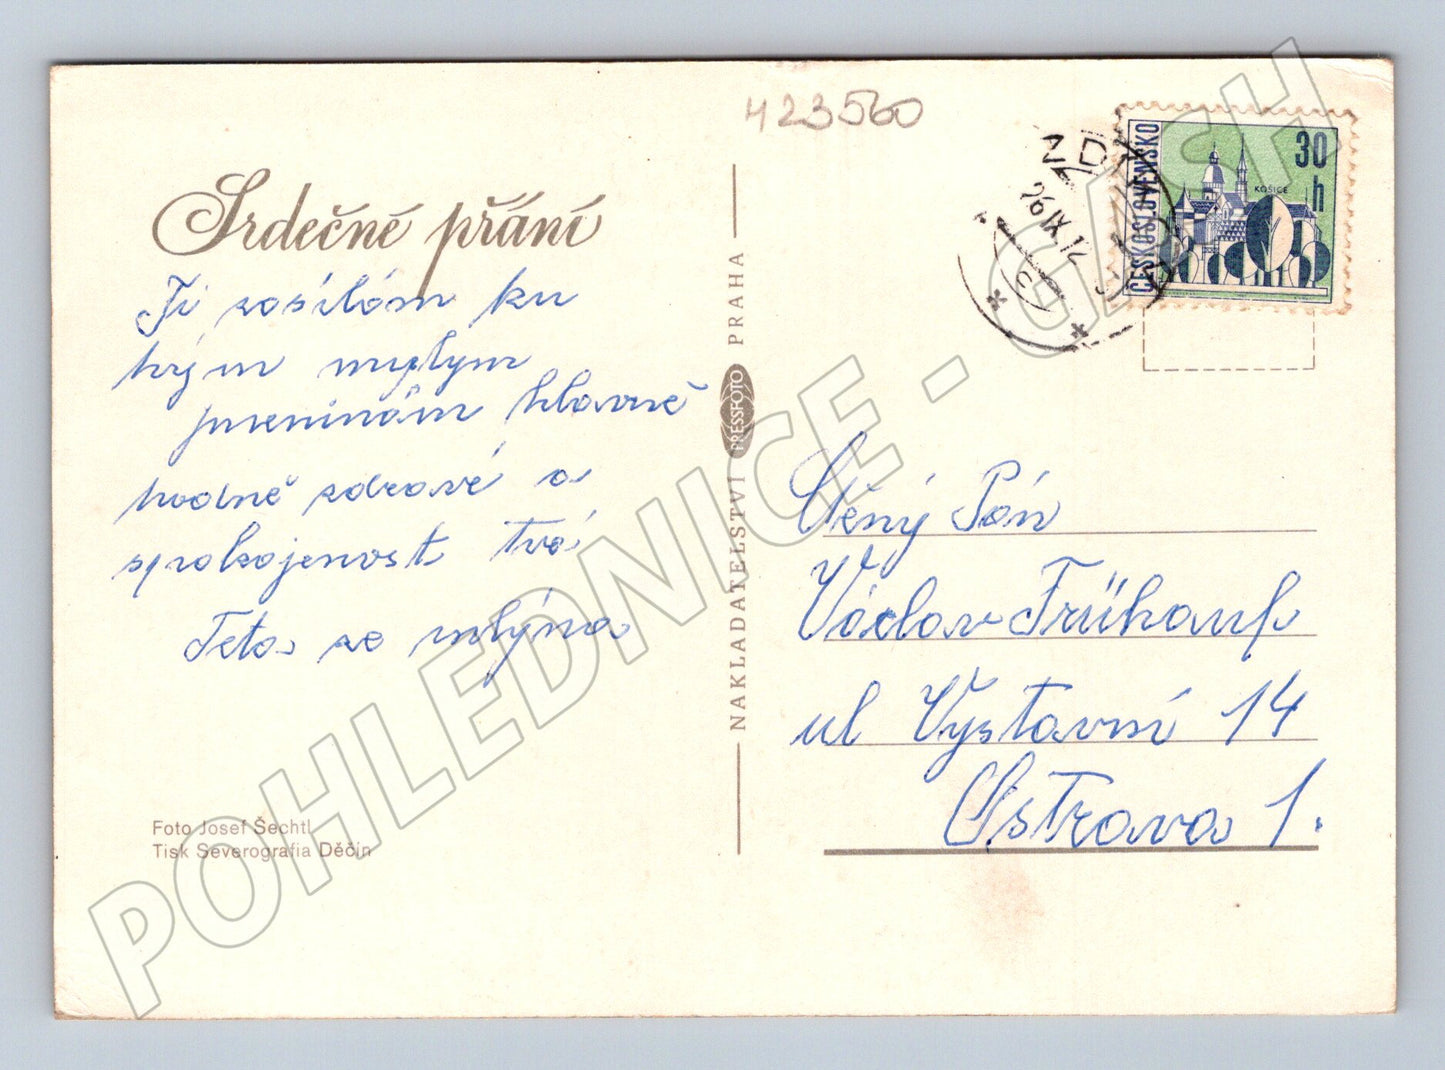 423560
Srdečné přání
Ti zasílám ku
tvým milým
jmeninám hlavně
hodně zdraví a
spokojenost tvá
Teta ze mlýna
Foto Josef Šechtl
Tisk Severografia Děčín
NAKLADATELSTVÍ PRESSFOTO PRAHA
ČESKOSLOVENSKO
30 h
KOŠICE
26.IX.72
Ctěný Pán
Václav Frühauf
ul Výstavní 14
Ostrava 1.
POHLEDNICE - GASH